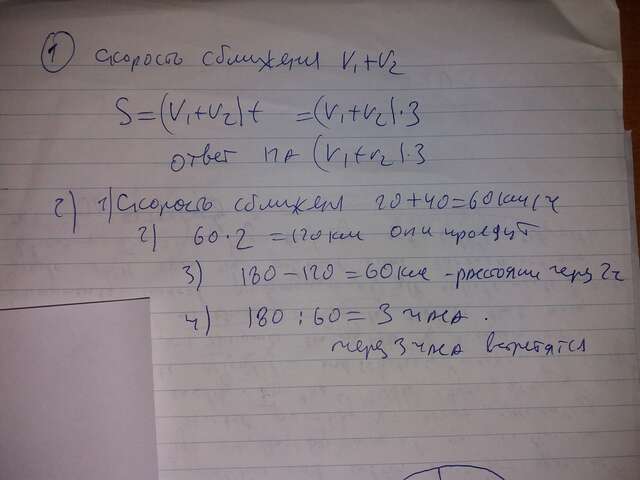 ① скорость сближен V₁+V₂
S=(V₁+V₂)t =(V₁+V₂)·3
ответ на (V₁+V₂)·3
2) 1) Скорость сближен 20+40=60км/ч
2) 60·2=120км они пройдут
3) 180-120=60км -расстоян через 2ч
4) 180:60=3 часа.
через 3 часа встретятся